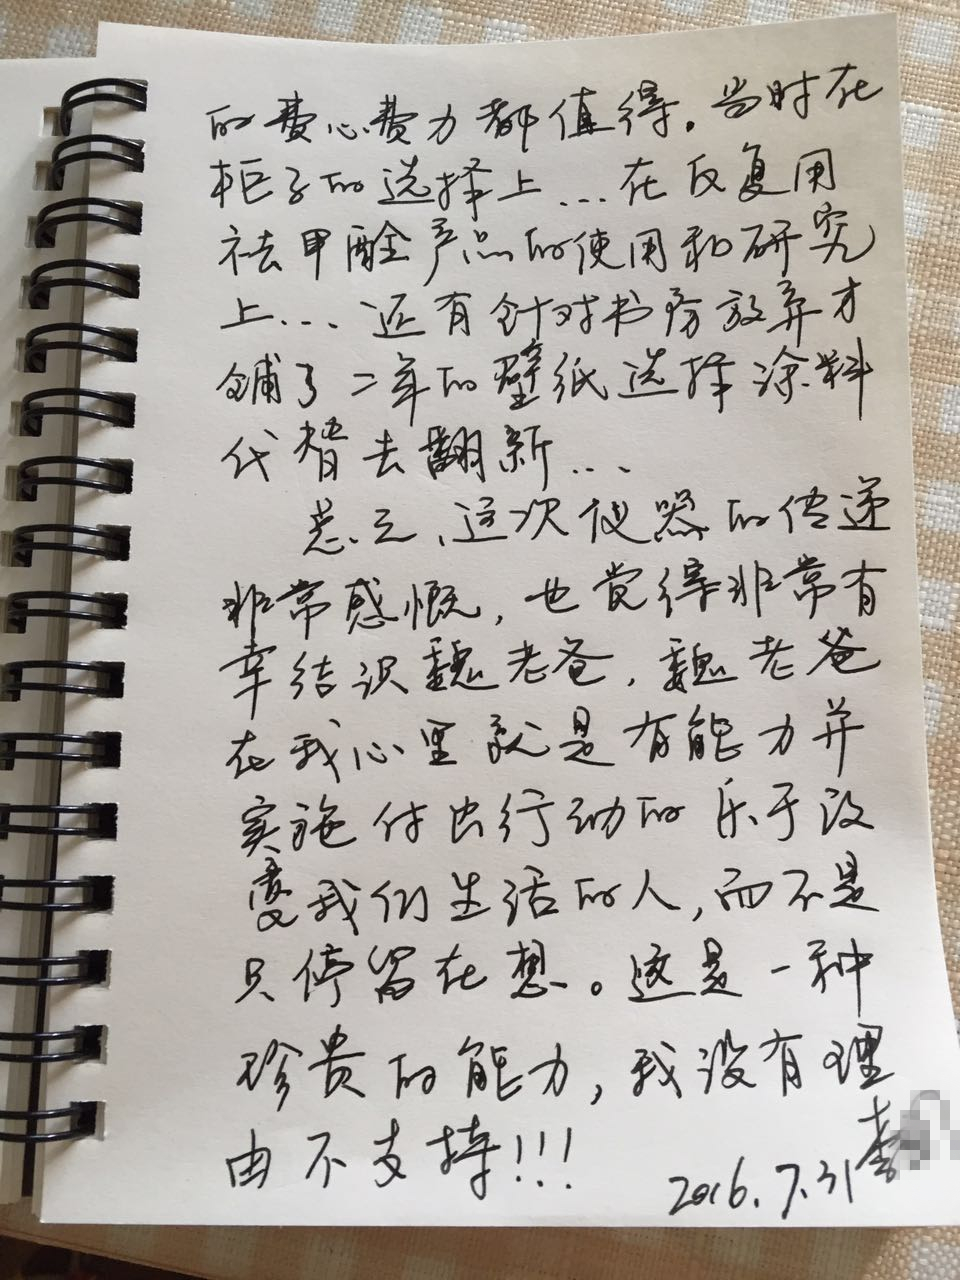 的费心费力都值得。当时在
柜子的选择上…在反复用
祛甲醛产品的使用和研究
上…还有针对书房放弃才
铺了二年的壁纸选择涂料
代替去翻新…
总之、这次仪器的传递
非常感慨，也觉得非常有
幸结识魏老爸，魏老爸
在我心里就是有能力并
实施付出行动的乐于改
变我们生活的人，而不是
只停留在想。这是一种
珍贵的能力，我没有理
由不支持!!!
2016.7.31